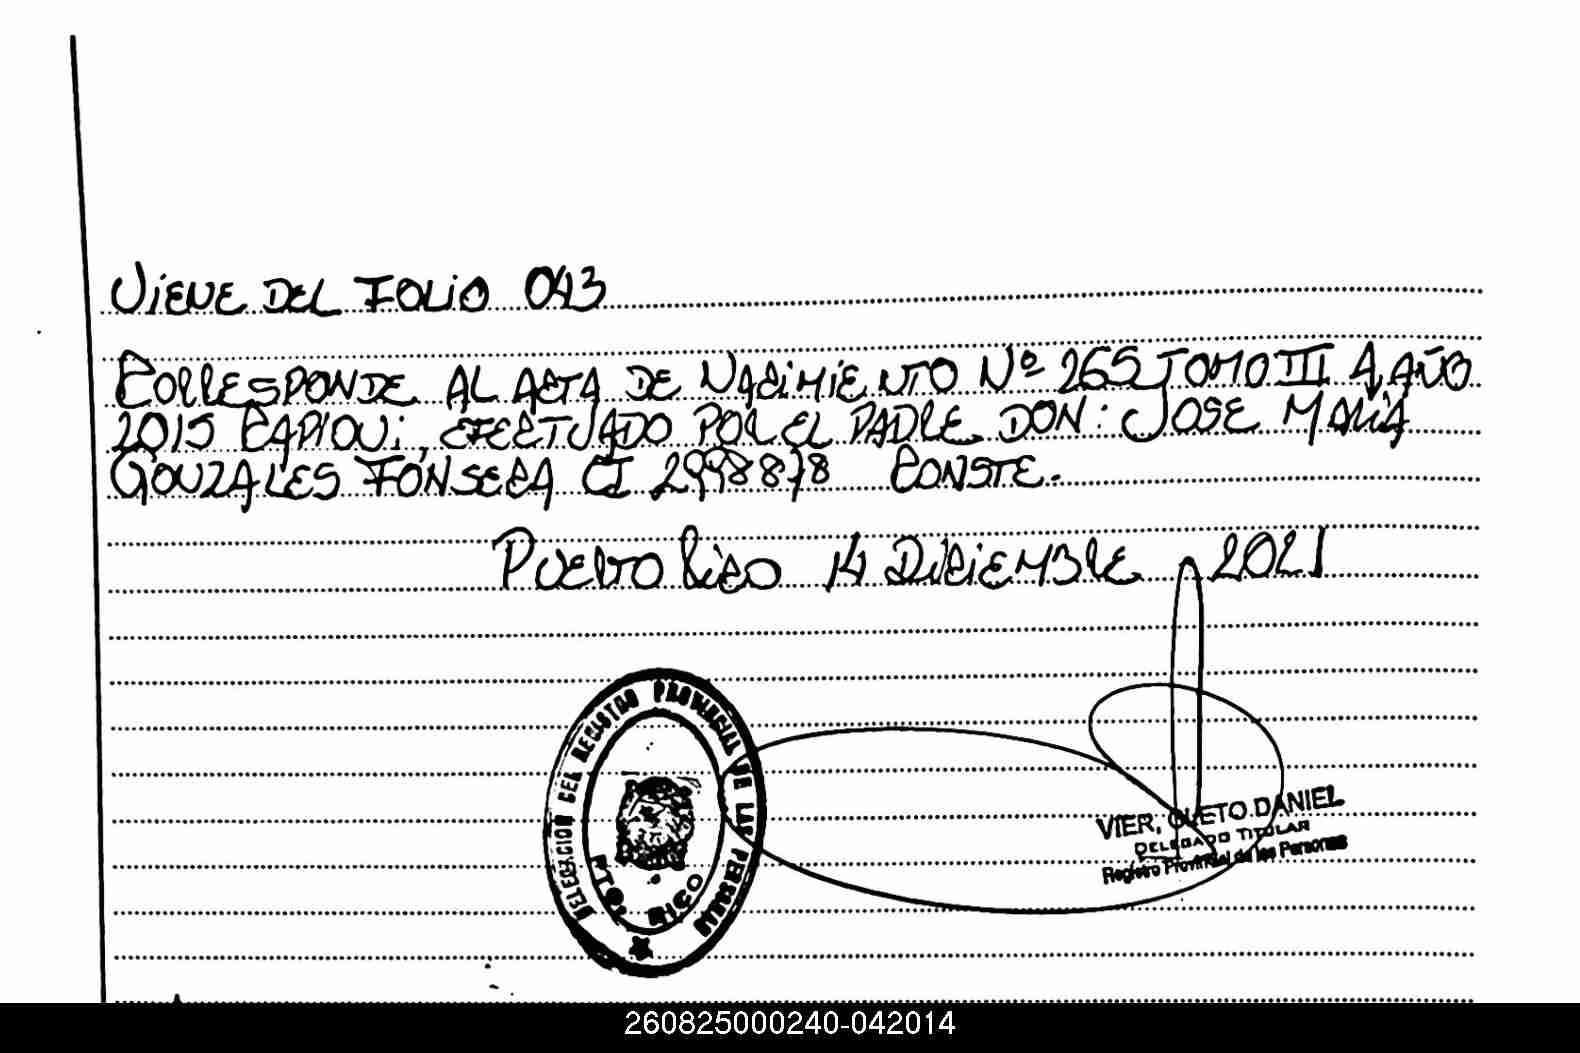 VIENE DEL FOLIO 043
CORRESPONDE AL ACTA DE NACIMIENTO Nº 265 TOMO III A AÑO
2015 CAPIOVI, EFECTUADO POR EL PADRE DON: JOSE MARIA
GONZALES FONSECA CI 2998878 CONSTE.
PUERTO RICO 14 DICIEMBRE 2021
DELEGACION DEL REGISTRO PROVINCIAL DE LAS PERSONAS
PTO. RICO
VIER, CUETO DANIEL
DELEGADO TITULAR
Registro Provincial de las Personas
260825000240-042014